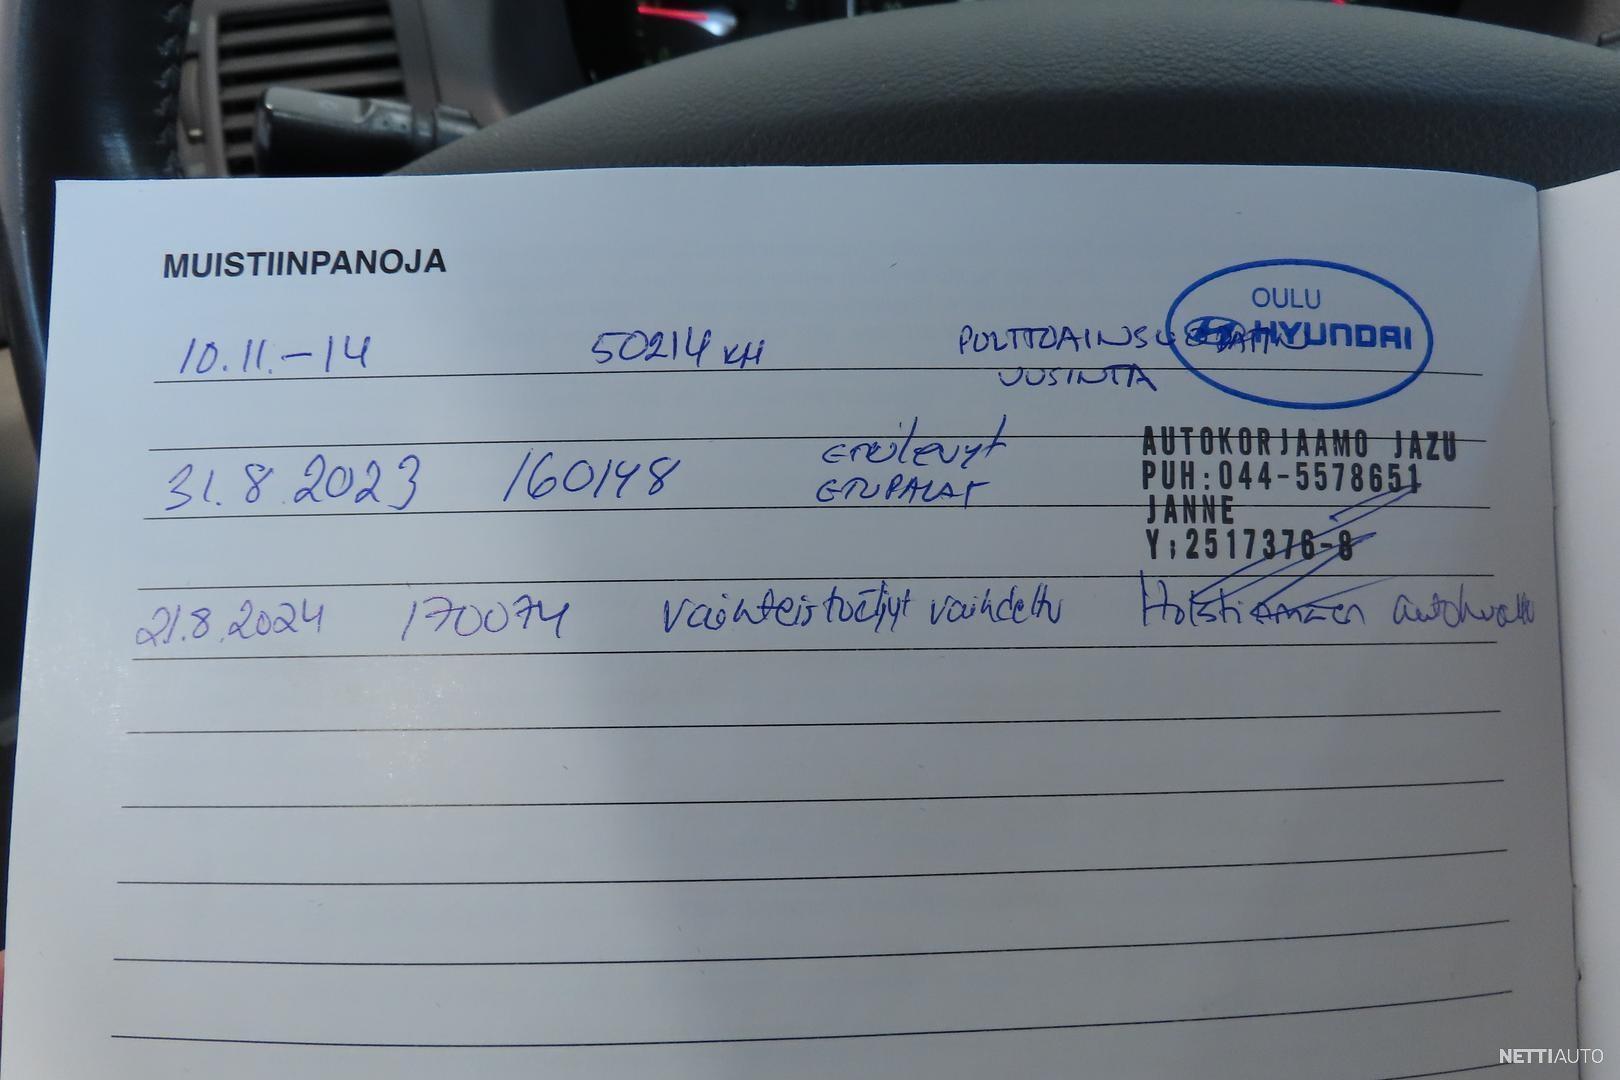 MUISTIINPANOJA
OULU
HYUNDAI
10.11.-14 50214 KM POLTTOAINSU
UUSINTA
AUTOKORJAAMO JAZU
PUH:044-5578651
JANNE
Y:2517376-8
31.8.2023 160148 ETULEVYT
ETUPALAT
21.8.2024 170074 Vaihteistoöljyt vaihdettu
NETTIAUTO